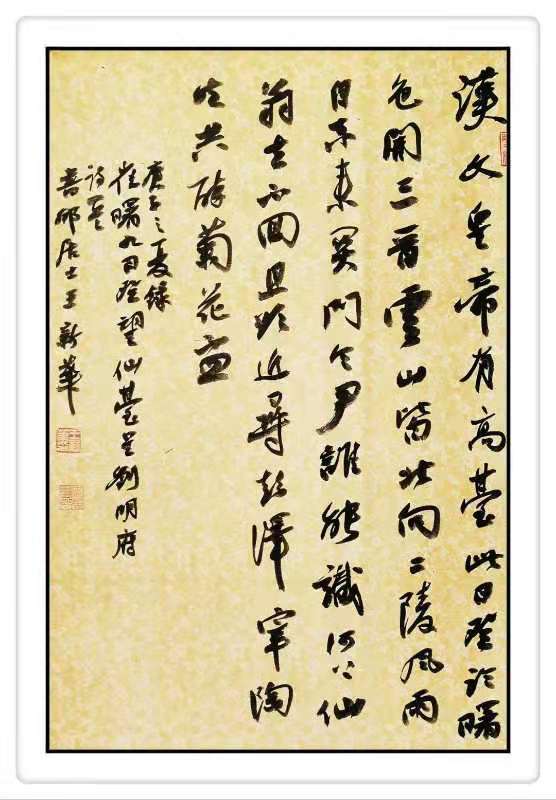 漢文皇帝有高臺此日登臨曙
色開三晋雲山皆北向二陵風雨
自東来関門令尹誰能識河上仙
翁去不回且欲近尋彭澤宰陶
然共醉菊花盃
庚子之夏録
崔曙九日登望仙臺呈劉明府
詩一首
邨居士王新華